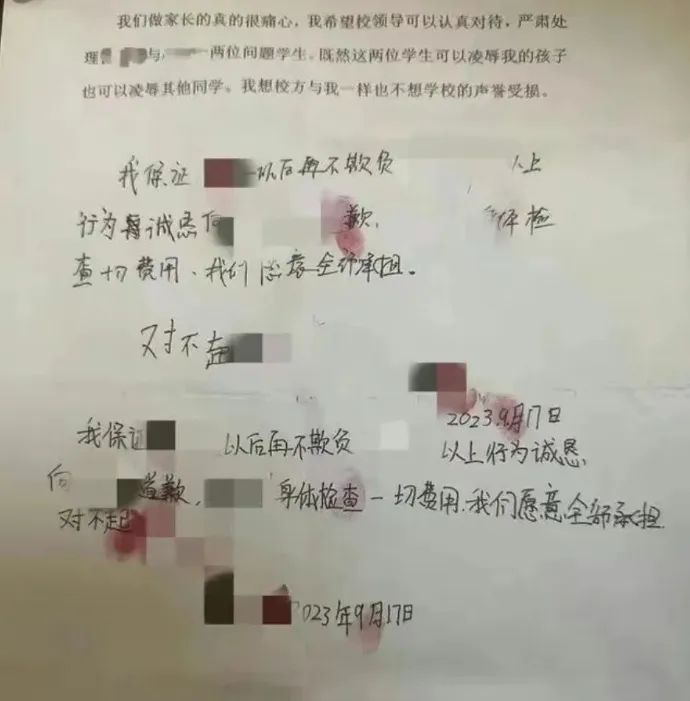 我们做家长的真的很痛心，我希望校领导可以认真对待，严肃处
理 与 两位问题学生。既然这两位学生可以凌辱我的孩子
也可以凌辱其他同学。我想校方与我一样也不想学校的声誉受损。
我保证 以后再不欺负 以上
行为 诚恳向 歉, 体检
查一切费用、我们愿意全部承担。
对不起
2023.9月17日
我保证 以后再不欺负 以上行为诚恳
向 道歉, 身体检查一切费用,我们愿意全部承担
对不起
2023年9月17日